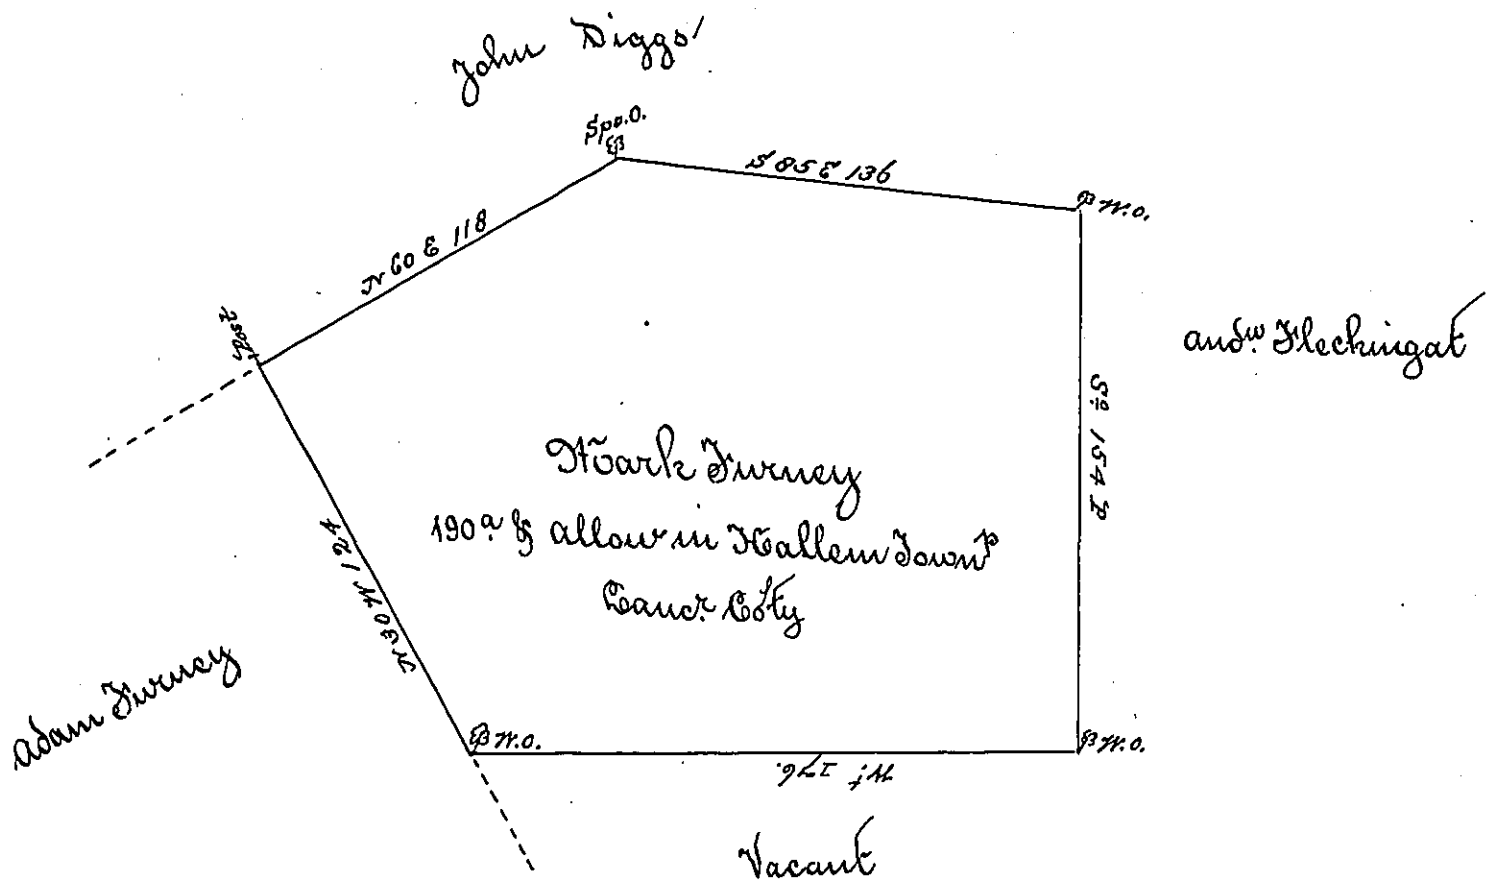 John Diggs'
Spa.O.
S 85 E 136
W.O.
N 60 E 118
Post
And.w Fleckingat
So 154 P
Mark Furney
190a & allow in Hallem Townp
Lancr. Coty
N 30 W 124
Adam Furney
W.O.
W.O.
Wt 176.
Vacant